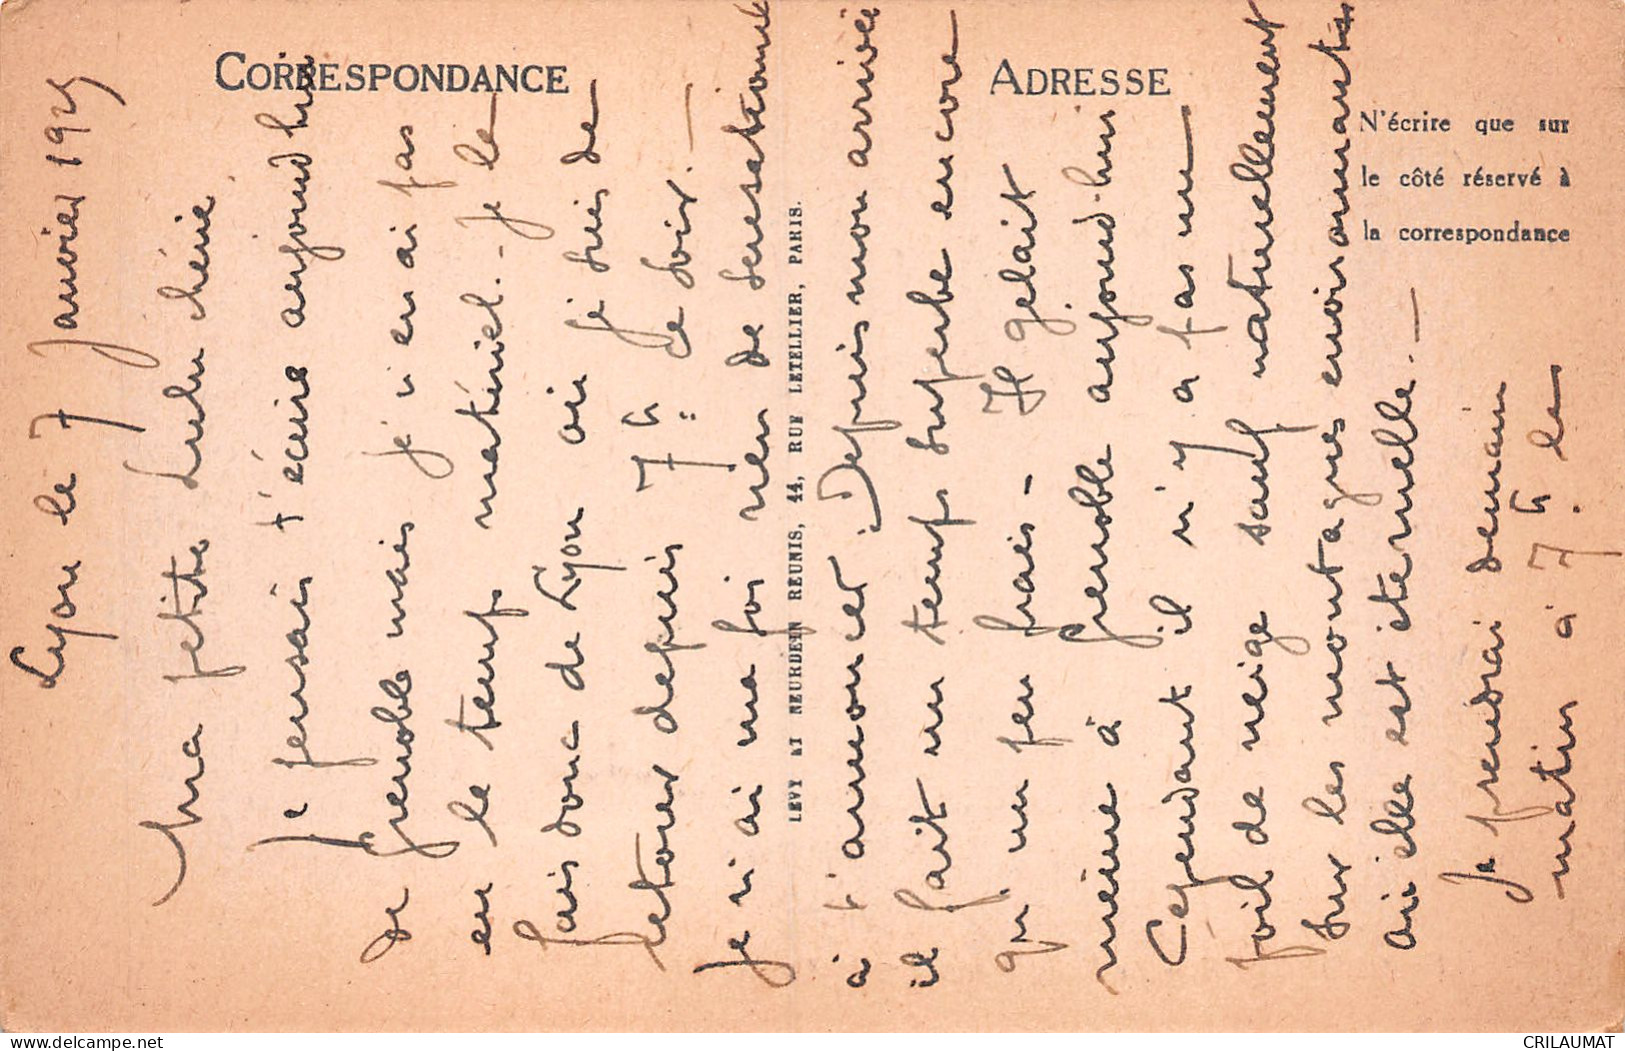 CORRESPONDANCE
ADRESSE
N'écrire que sur
le côté réservé à
la correspondance
LEVY ET NEURDEIN REUNIS, 44, RUE LETELLIER, PARIS.
Lyon le 7 Janvier 1925
Ma petite Lulu chérie
Je pensais t'écrire aujourd'hui
de Grenoble mais je n'en ai pas
eu le temps matériel. - Je le
fais donc de Lyon où je suis de
retour depuis 7h ce soir. -
Je n'ai ma foi rien de sensationnel
à t'annoncer. Depuis mon arrivée
il fait un temps superbe encore
qu'un peu frais - Il gelait
même à Grenoble aujourd'hui
Cependant il n'y a pas un
poil de neige sauf naturellement
sur les montagnes environnantes
où elle est éternelle. -
Je prendrai demain
matin à 7h. le
CRILAUMAT